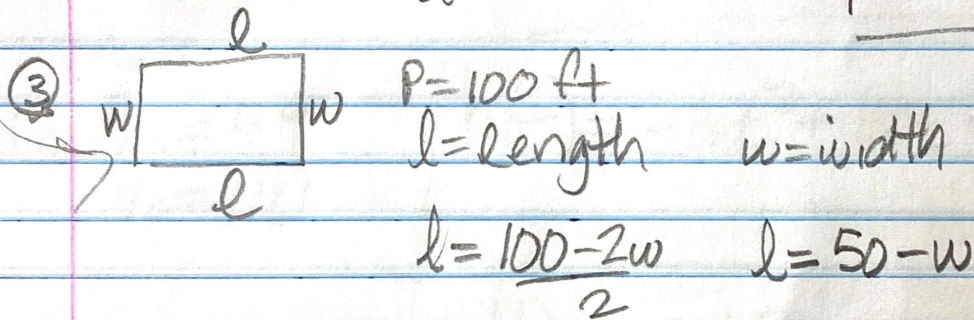 ③
l
w w
l
P=100 ft
l=length w=width
l=100-2w/2 l=50-w